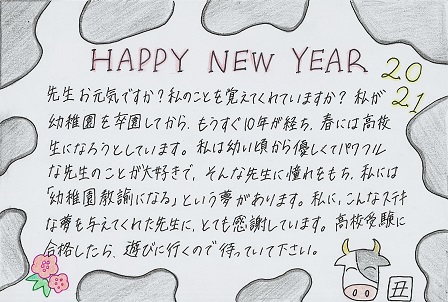 HAPPY NEW YEAR
20
21
先生お元気ですか？私のことを覚えてくれていますか？私が
幼稚園を卒園してから、もうすぐ10年が経ち、春には高校
生になろうとしています。私は幼い頃から優しくてパワフル
な先生のことが大好きで、そんな先生に憧れをもち、私には
「幼稚園教諭になる」という夢があります。私に、こんなステキ
な夢を与えてくれた先生に、とても感謝しています。高校受験に
合格したら、遊びに行くので待っていて下さい。
丑